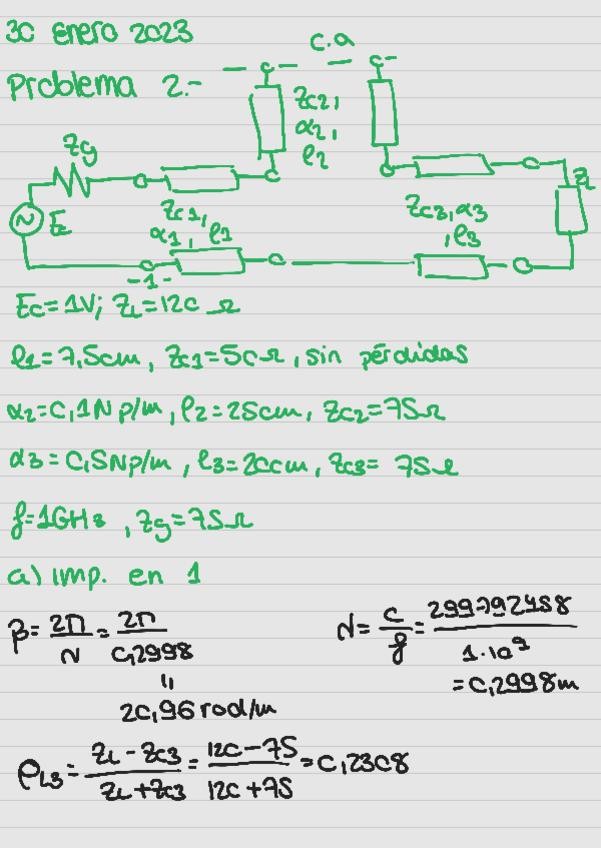 30 Enero 2023
c.a
Problema 2.-
Zg
Zc2,
α2,
ℓ2
E
Zc1,
α1, ℓ1
Zc3, α3
, ℓ3
ZL
-1-
EG=1V; ZL=120 Ω
ℓ1=7,5cm, Zc1=50Ω, sin pérdidas
α2=0,1Np/m, ℓ2=25cm, Zc2=75Ω
α3=0,5Np/m, ℓ3=20cm, Zc3= 75Ω
f=1GHz, Zg=75Ω
a) imp. en 1
β = 2π/λ = 2π/0,2998
"
20,96 rad/m
λ = c/f = 299792458/1·10⁹
= 0,2998m
ρL3 = ZL-Zc3/ZL+Zc3 = 120-75/120+75 = 0,2308